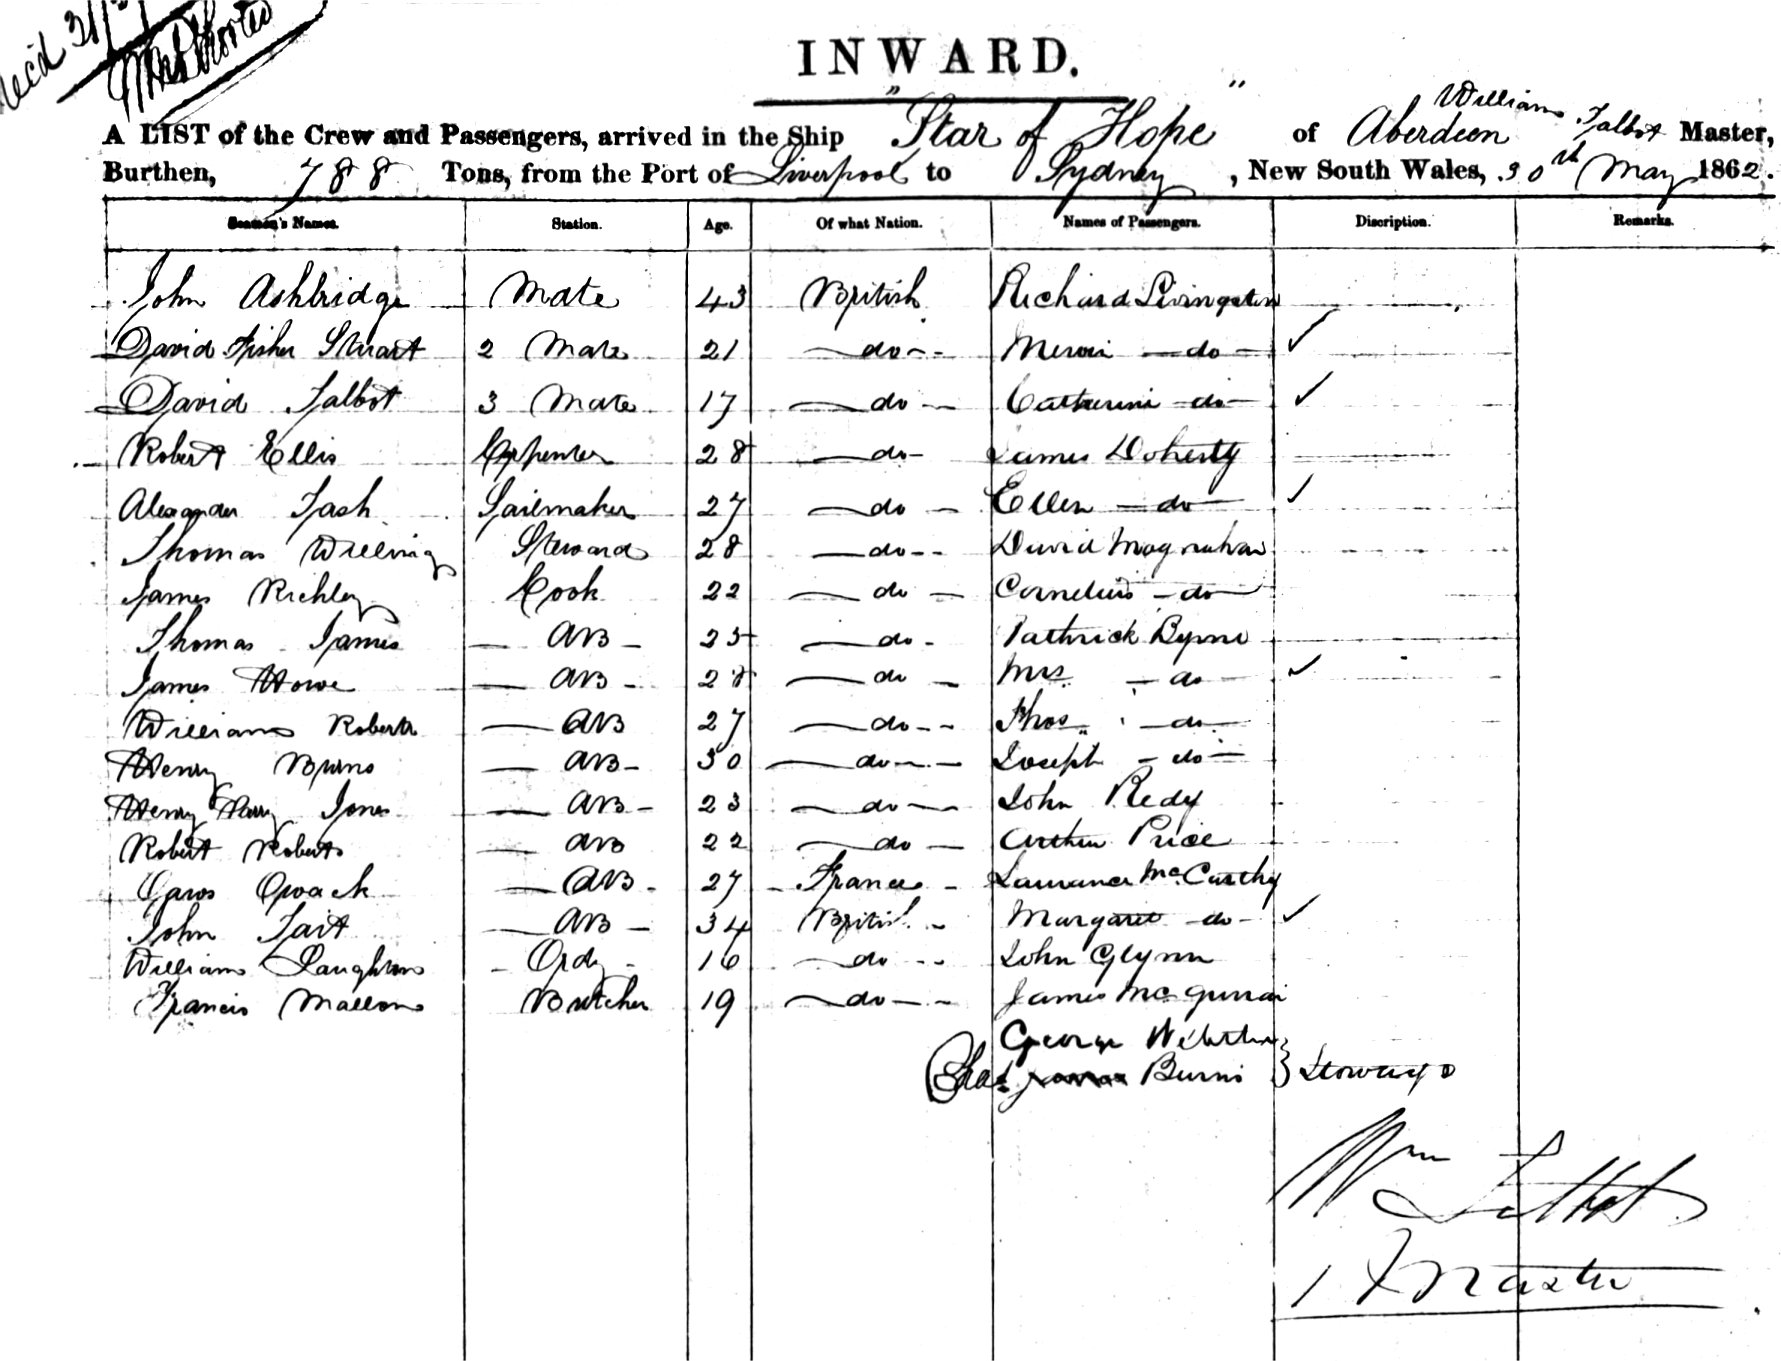 Rec'd 31/5
INWARD.
A LIST of the Crew and Passengers, arrived in the Ship "Star of Hope" of Aberdeen William Talbot Master,
Burthen, 788 Tons, from the Port of Liverpool to Sydney, New South Wales, 30th May 1862.
Seamen's Names. Station. Age. Of what Nation. Names of Passengers. Discription. Remarks.
John Ashbridge Mate 43 British Richard Livingston
David Fisher Stuart 2 Mate 21 do do ✓
David Talbot 3 Mate 17 do Catherine do ✓
Robert Ellis Carpenter 28 do James Doherty
Alexander Tash Sailmaker 27 do Ellen do ✓
Thomas Willing Steward 28 do David
James Richley Cook 22 do Cornelius do
Thomas James AB 25 do Pathrick Byrne
James Howe AB 28 do Mrs do ✓
William Roberts AB 27 do Thos. do
Henry Burns AB 30 do Joseph do
Henry Harry Jones AB 23 do John Redy
Robert Roberts AB 22 do Arthur Price
AB 27 France Laurance McCarthy
John Tait AB 34 British Margaret do ✓
William Laughton Ordy 16 do John Glynn
Francis Mallon Butcher 19 do James
George Webster
Chas Burns } Stoways
Wm Talbot
Master